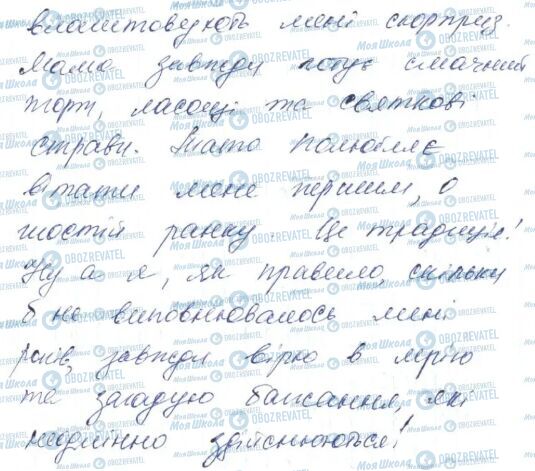 влаштовують мені сюрприз.
Мама завжди готує смачний
торт, ласощі та святкові
страви. Тато полюбляє
вітати мене першим, о
шостій ранку. Це традиція!
Ну а я, як правило, скільки
б не виповнювалось мені
років, завжди вірю в мрію
та загадую бажання, які
неодмінно здійснюються!